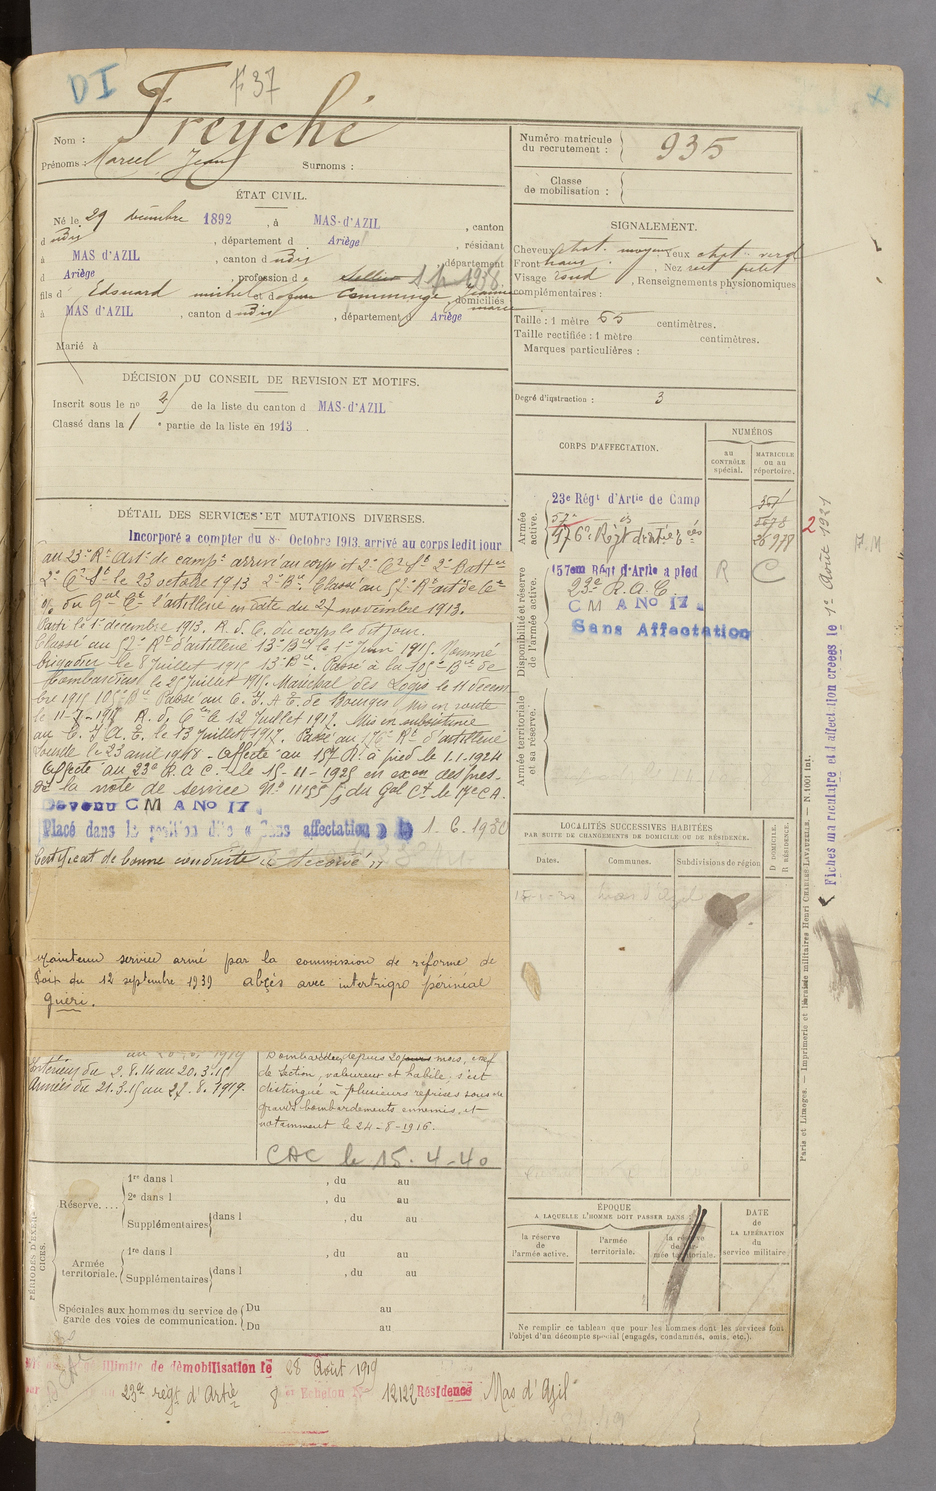 DI
F37
Freyché
Nom :
Prénoms : Marcel Jean Surnoms :
Numéro matricule du recrutement : 935
Classe de mobilisation :
ÉTAT CIVIL.
Né le 29 décembre 1892, à MAS-d'AZIL, canton
d udit, département d Ariège, résidant
à MAS D'AZIL, canton d udit, département
d Ariège, profession de sellier
fils d' Edouard Michel et de Comminge Jeanne Marie, domiciliés
à MAS D'AZIL, canton d udit, département d Ariège
Marié à
DÉCISION DU CONSEIL DE REVISION ET MOTIFS.
Inscrit sous le no 2 de la liste du canton d MAS-d'AZIL
Classé dans la 1 e partie de la liste en 1913.
SIGNALEMENT.
Cheveux chat. moyen Yeux chat. verd
Front haut, Nez rect petit
Visage rond, Renseignements physionomiques
complémentaires :
Taille : 1 mètre 65 centimètres.
Taille rectifiée : 1 mètre centimètres.
Marques particulières :
Degré d'instruction : 3
DÉTAIL DES SERVICES ET MUTATIONS DIVERSES.
Incorporé a compter du 8 Octobre 1913, arrivé au corps ledit jour
au 23e Rt Art. de campe arrivé au corps et 2e Cr St 2e Batt
2e Cr St le 23 octobre 1913 2e Bie. Classé au 57e Rt art de Cne
o/o du Gal Ct l'artillerie en date du 27 novembre 1913.
Parti le 1er décembre 1913. R. d. C. du corps le dit jour.
Classé au 57e Rt d'artillerie 13e Bie le 1er juin 1915. Nommé
brigadier le 8 juillet 1915 13e Bie. Passé à la 105e Bie de
Bombardiers le 25 juillet 1915. Maréchal des Logis le 11 décem
bre 1915 105e Bie Passé au C. I. A. T. de Bourges Mis en route
le 11-7-1917 R. d. C. le 12 Juillet 1917. Mis en subsistance
au C. I. A. T. le 13 Juillet 1917. Passé au 176e Rt d'artillerie
le 23 avril 1918. Affecté au 157 R. à pied le 1.1.1924
Affecté au 23e R. A. C. le 15-11-1925 en exon des pres-
de la note de service No 11155 du Gal Ct le 17e C.A.
Devenu C M A No 17
Placé dans la position dite « Sans affectation » 1. 6. 1930
Certificat de bonne conduite « accordé »
Maintenu service armé par la commission de réforme de
Foix du 12 septembre 1939 abcès avec intertrigo périnéal
guéri.
Intérieur du 2. 8. 14 au 20. 3. 15
Armées du 21. 3. 15 au 27. 8. 1919.
Bombardier depuis 20 jours mois, chef
de section, valeureux et habile, s'est
distingué à plusieurs reprises sous de
grands bombardements ennemis, et
notamment le 24-8-1916.
CAC le 15. 4-40
CORPS D'AFFECTATION.
NUMÉROS
au CONTRÔLE spécial.
MATRICULE ou au répertoire.
Armée active.
23e Régt d'Artie de Camp
57e
176e Régt d'artie
26978
Disponibilité et réserve de l'armée active.
157em Régt d'Artie a pied R C
23e R.A.C.
C M A No 17
Sans Affectation
Armée territoriale et sa réserve.
LOCALITÉS SUCCESSIVES HABITÉES
PAR SUITE DE CHANGEMENTS DE DOMICILE OU DE RÉSIDENCE.
Dates. Communes. Subdivisions de région
D. DOMICILE. R. RÉSIDENCE.
ÉPOQUE
A LAQUELLE L'HOMME DOIT PASSER DANS
la réserve de l'armée active.
l'armée territoriale.
la réserve de l'armée territoriale.
DATE de LA LIBÉRATION du service militaire.
Ne remplir ce tableau que pour les hommes dont les services font
l'objet d'un décompte spécial (engagés, condamnés, omis, etc.).
PÉRIODES D'EXERCICES.
Réserve.... 1re dans l , du au
2e dans l , du au
Supplémentaires dans l , du au
Armée territoriale. 1re dans l , du au
Supplémentaires dans l , du au
Spéciales aux hommes du service de garde des voies de communication. Du au
Du au
illimité de démobilisation le 28 Août 1919
23e régt d'Artie 8 Echelon No 12122 Résidence Mas d'Azil
Fiches matriculaire et d'affectation créées le 1er Août 1921
F. M
Paris et Limoges. — Imprimerie et Librairie militaires Henri CHARLES-LAVAUZELLE. — N. 1001 int.